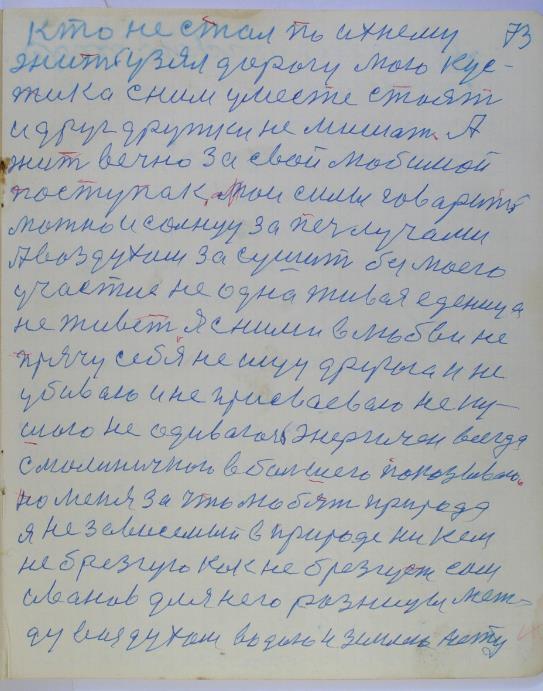 кто не стал по ихнему 73
жит узял дорогу мою кус-
тика сним уместе стоят
и друг дружки не мишат. А
жит вечно за свой любимой
поступак, мои силы говарить
можно и солнцу за печ лучами
А воздухом за сушит без моего
участие не одна живая еденица
не живет Я сними в любви не
прячу себя не ищу друга и не
убиваю и не присваеваю не ку-
шаю не одиваюсь Энергичен всегда
в большего показываю,
но меня за что любят природа
я не зависемый в природе ни кем
не брезгую как не брезгует сам
для него разницы меж-
ду воздухом водою и землею нету